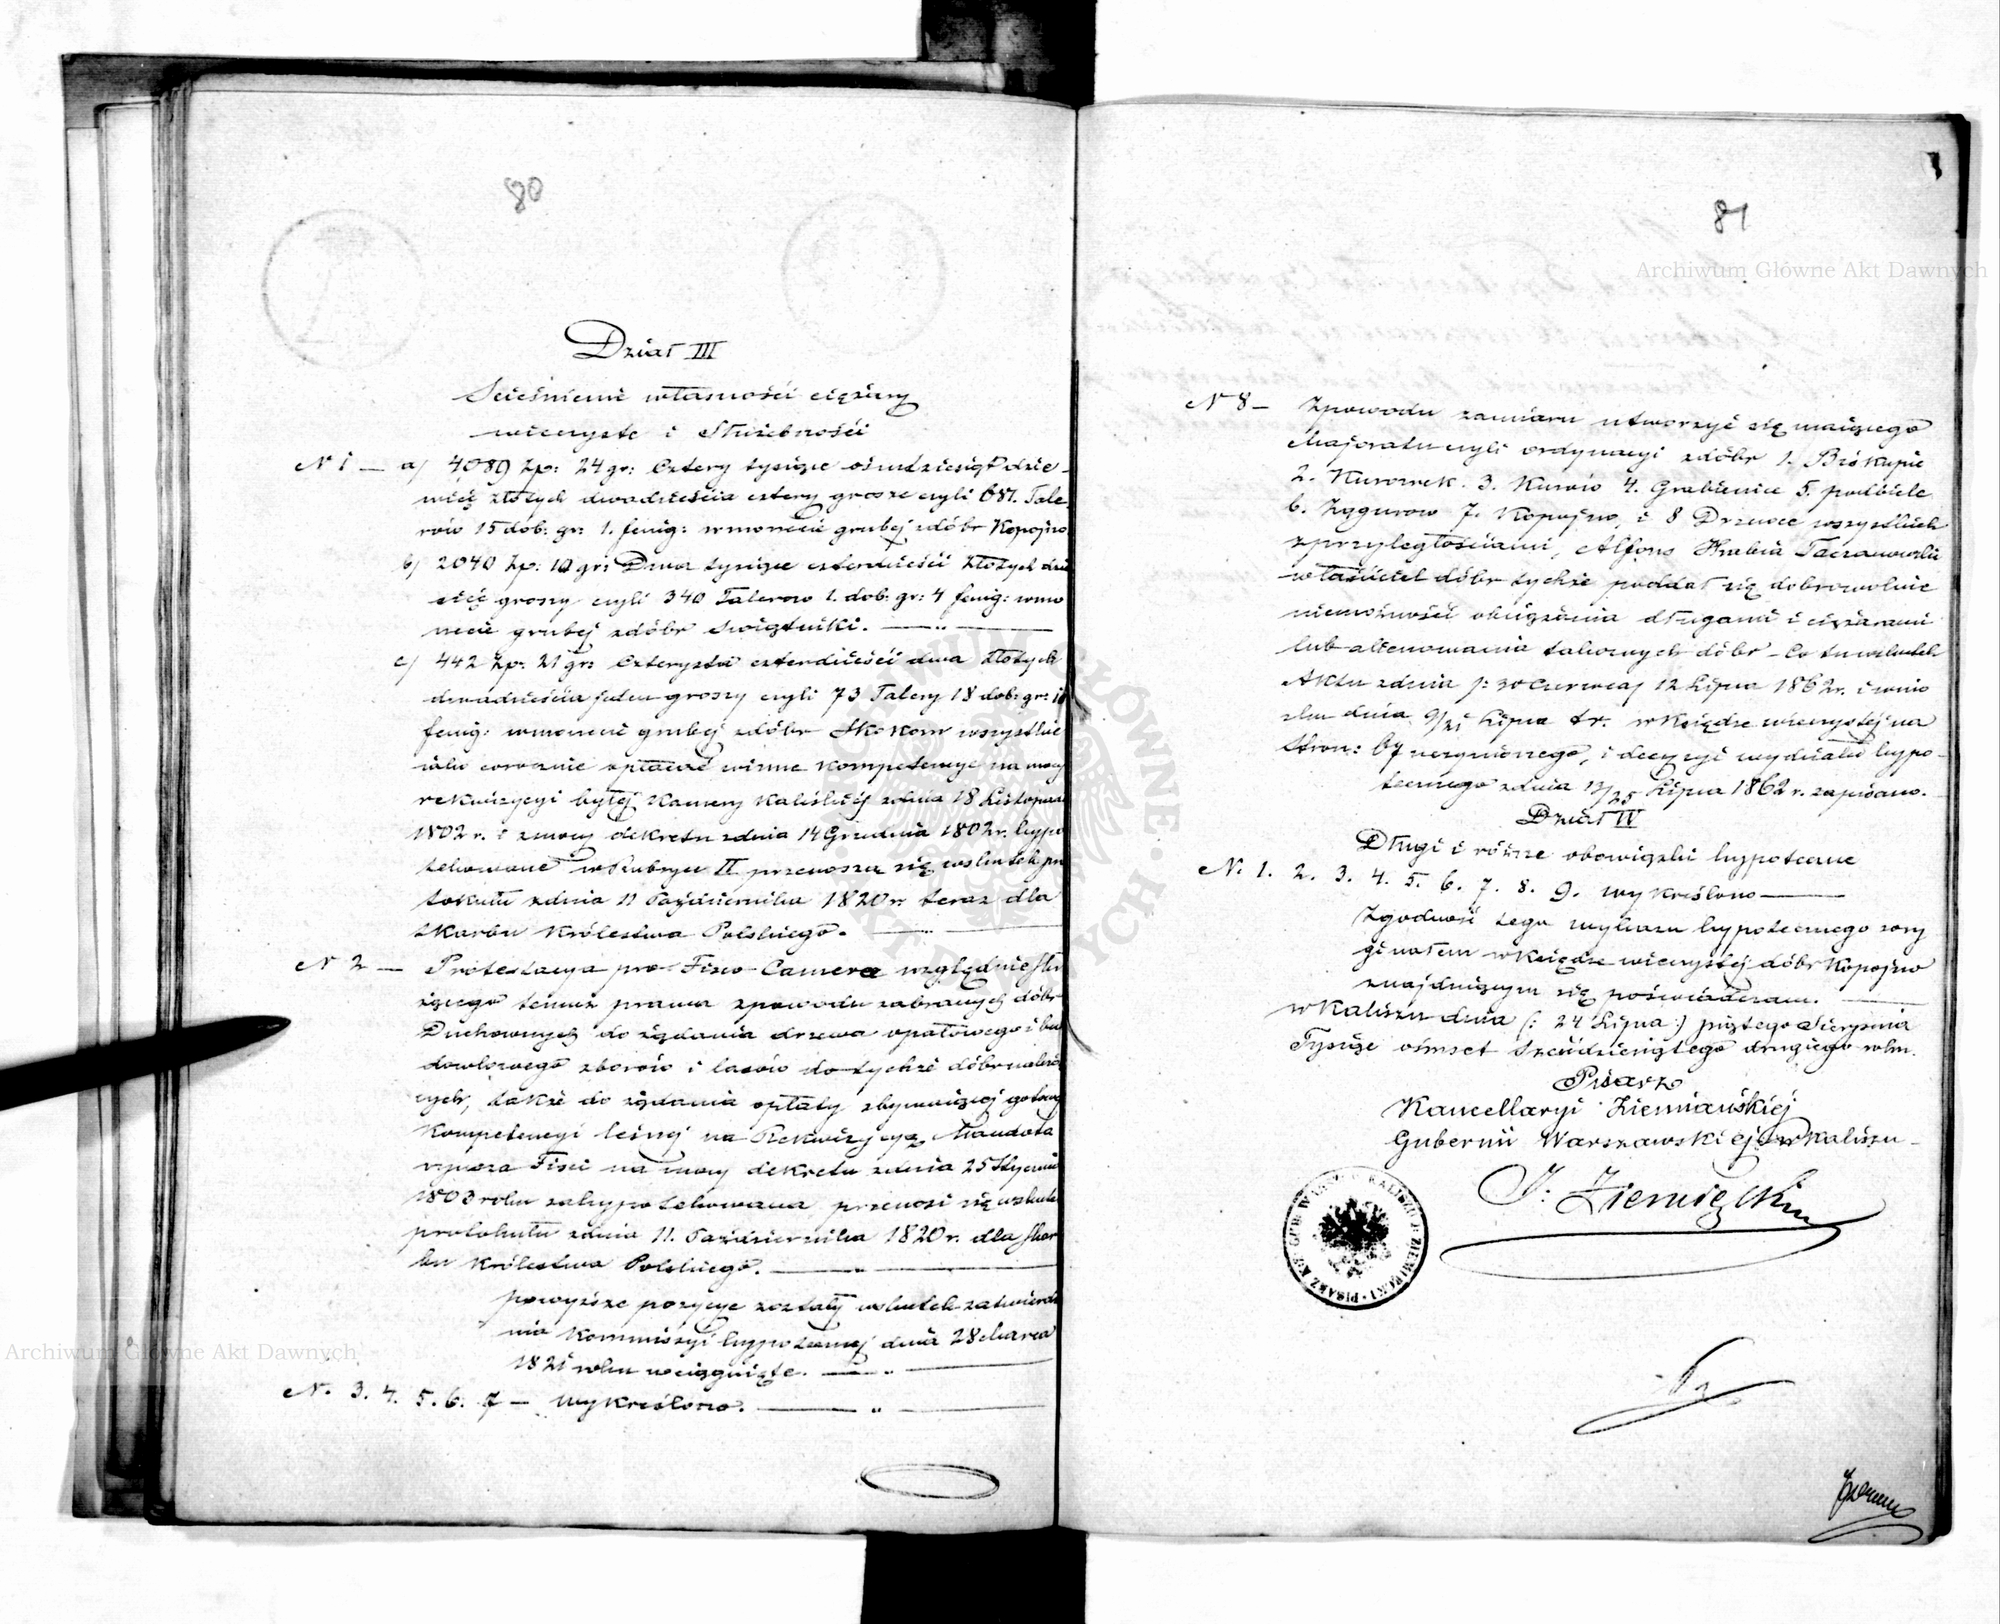 80
Dział III
Ścieśnienie własności ciężary
wieczyste i Służebności
N 1 — a) 4089 Zp: 24 gr: Cztery tysiące ośmdziesiąt dzie-
więć złotych dwadzieścia cztery grosze czyli 681. Tale
rów 15 dob: gr: 1. fenig: w monecie grubej z dóbr Kopojno
b) 2040 Zp: 10 gr: Dwa tysiące czterdzieści złotych dzie
sięć groszy czyli 340 Talerów 1. dob: gr: 4 fenig: w mo
necie grubej z dóbr Swiątniki. — „ —
c) 442 Zp: 21 gr: Czterysta czterdzieści dwa złotych
dwadzieścia jeden groszy czyli 73 Talery 18 dob: gr: 10
fenig: w monecie grubej z dóbr Skokum wszystkie
jako corocznie opłacać winne kompetencye na mocy
rekwizycyi byłej Kamery Kaliskiej z dnia 18 Listopada
1802 r. i z mocy dekretu z dnia 14 Grudnia 1802 r. hypo
tekowane w Rubryce II przenoszą się wskutek pro
tokułu z dnia 11 Października 1820 r. teraz dla
Skarbu Królestwa Polskiego. — „ —
N 2 — Protestacya pro Fisco Camera względnie słu
żącego temuż prawa z powodu zabranych dóbr
Duchownych do żądania drzewa opałowego i bu
dowlowego z borów i lasów do tychże dóbr należą
cych, także do żądania opłaty zbywającej gotową
Kompetencyi leśnej na Rekwizycyą Mandata
ryusza Fisci na mocy dekretu z dnia 25 Stycznia
1803 roku zahypotekowana przenosi się wskutek
protokułu z dnia 11. Października 1820 r. dla Skar
bu Królestwa Polskiego. — „ —
powyższe pozycye zostały wskutek zatwierdze
nia Kommissyi hypotecznej dnia 28 Marca
1821 roku wciągnięte. — „ —
N. 3. 4. 5. 6. 7 — wykreślono. — „ —
81
N 8 — Z powodu zamiaru utworzyć się mającego
Majoratu czyli ordynacyi z dóbr 1. Biskupie
2. Kurowek. 3. Kurów 4. Grabienice 5. podbiele
6. Zagurow 7. Kopojno, i 8 Drzewce wszystkich
z przyległościami, Alfons Hrabia Taczanowski
właściciel dóbr tychże poddał się dobrowolnie
niemożności obciążania długami i ciężarami
lub alienowania takowych dóbr — Co to wskutek
Aktu z dnia (: 30 Czerwca) 12 Lipca 1862 r. i wnio
sku dnia 9/21 Lipca t.r. w Księdze wieczystej na
Stron: 67 uczynionego, i decyzyi wydziału hypo-
tecznego z dnia 13/25 Lipca 1862 r. zapisano.
Dział IV
Długi i różne obowiązki hypoteczne
N. 1. 2. 3. 4. 5. 6. 7. 8. 9. wykreślono —
Zgodność tego wykazu hypotecznego z ory
ginałem w Księdze wieczystej dóbr Kopojno
znajdującym się poświadczam. —
w Kaliszu dnia (: 24 Lipca :) piątego Sierpnia
Tysiąc ośmset Sześćdziesiątego drugiego roku.
Pisarz
Kancellaryi Ziemiańskiej
Gubernii Warszawskiej w Kaliszu —
J: Ziemięcki
Archiwum Główne Akt Dawnych
Archiwum Główne Akt Dawnych